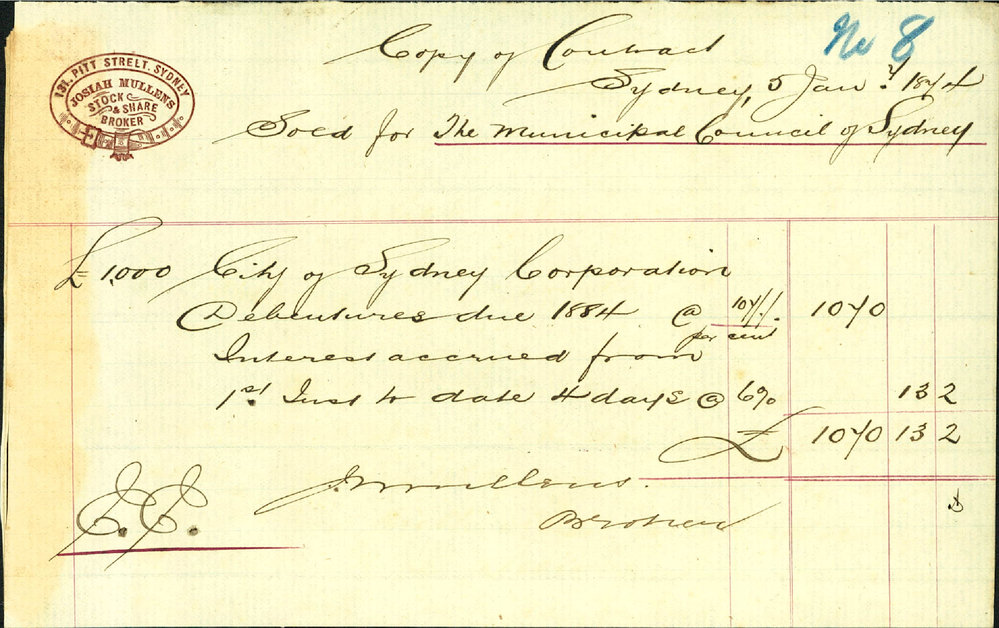 No 8
Copy of Contract
Sydney, 5 Jany. 1874
131. PITT STREET. SYDNEY
JOSIAH MULLENS
STOCK & SHARE BROKER
Sold for The Municipal Council of Sydney
£1,000 City of Sydney Corporation
Debentures due 1884 @ 107/. per cent 1070
Interest accrued from
1st. Inst to date 4 days @ 6% 13 2
£ 1070 13 2
JMullens.
Broker
E. E.